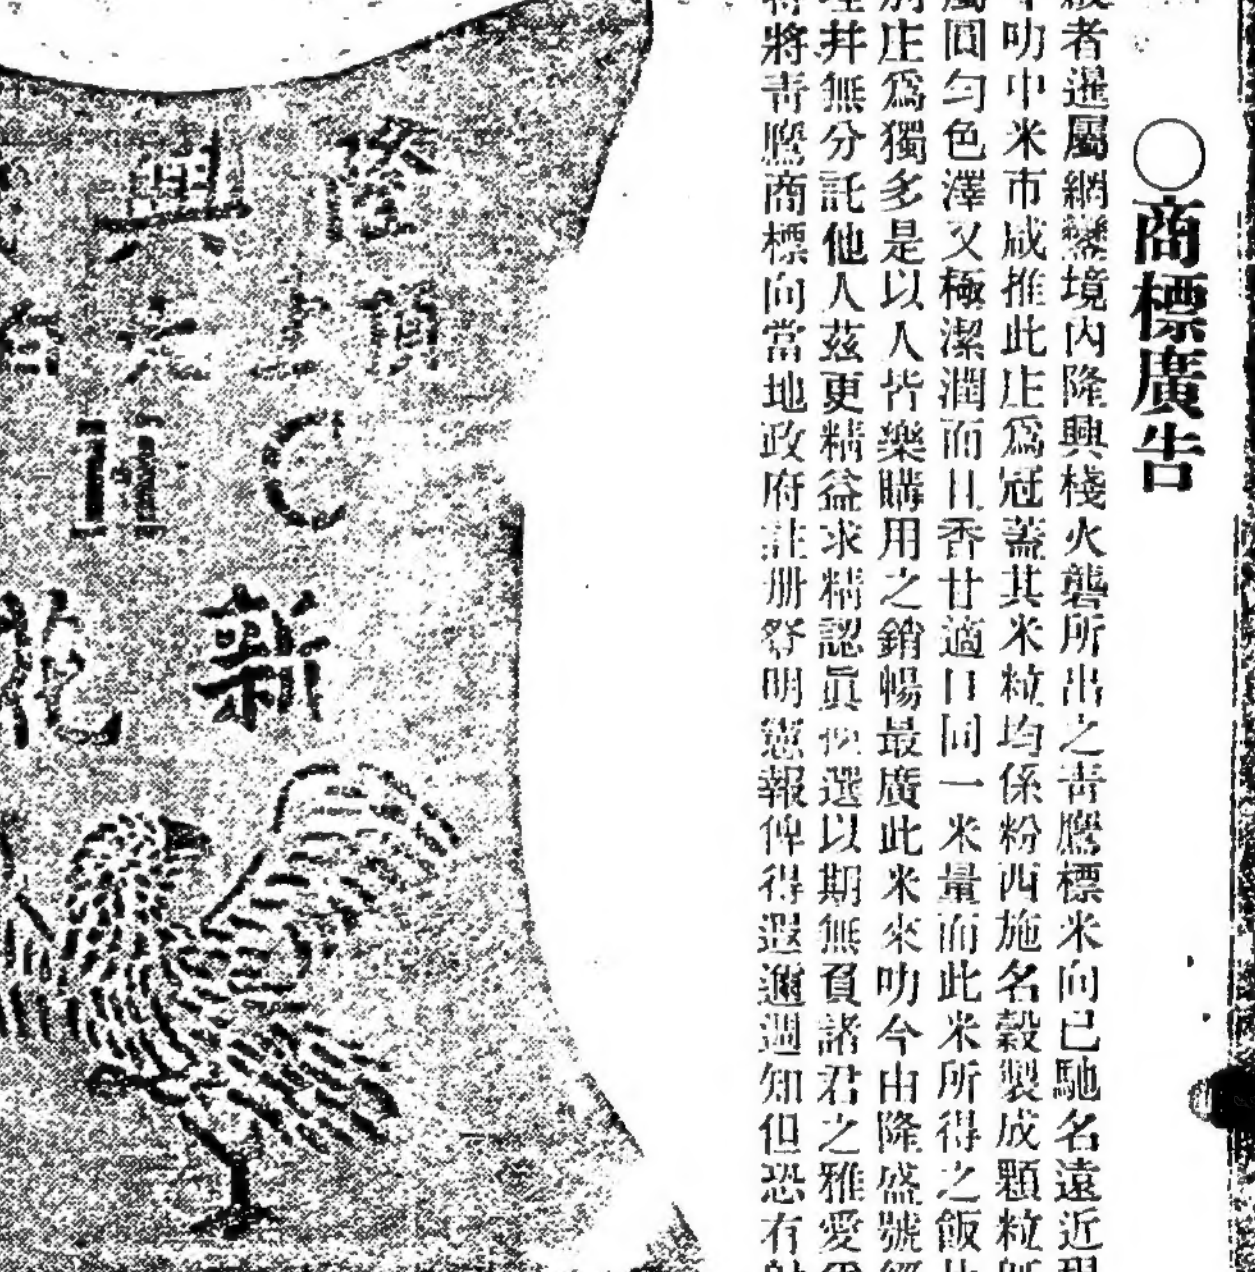 ○商標廣告
啟者暹屬網𨭎境內隆興棧火礱所出之青鷹標米向已馳名遠近現
叻中米市咸推此庄為冠蓋其米粒均係粉西施名穀製成顆粒
屬圓勻色澤又極潔潤而且香甘適口同一米量而此米所得之飯比
別庄為獨多是以人皆樂購用之銷暢最廣此米來叻今由隆盛號經
理并無分託他人茲更精益求精認眞 選以期無負諸君之雅愛
特將青鷹商標向當地政府註册發明憲報俾得遐邇週知但恐有
隆興
頂上
C H
新花